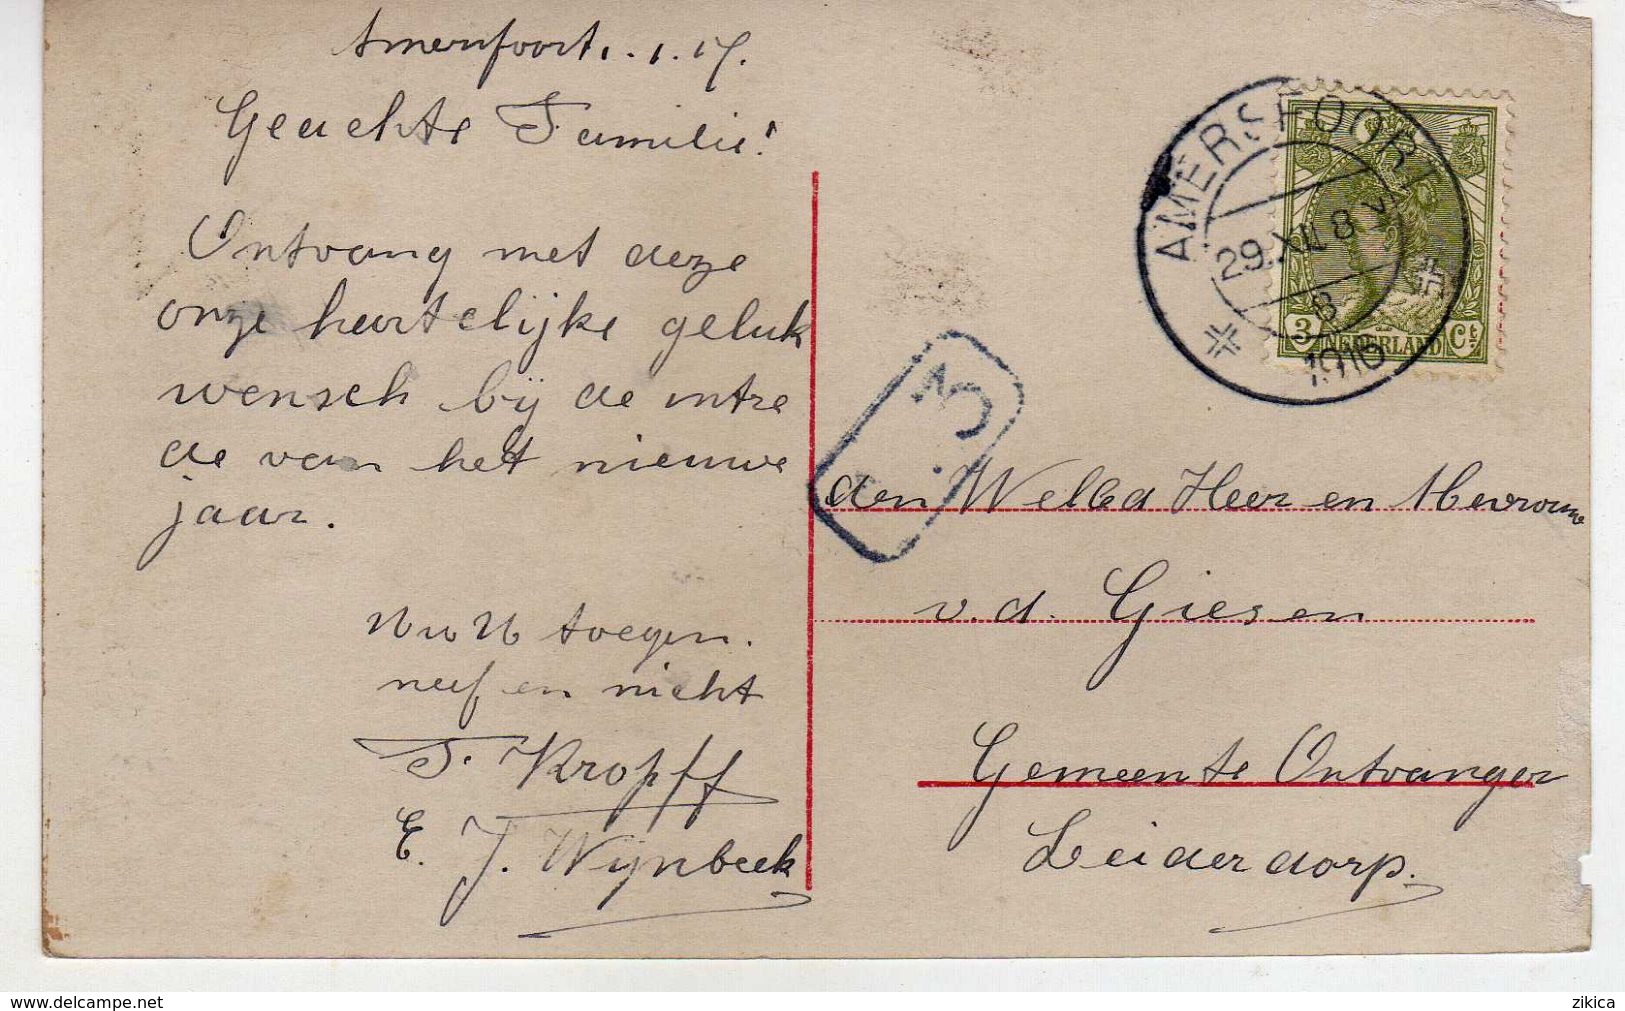 Amersfoort. 1.1.17.
Geachte Familie!
Ontvang met deze
onze hartelijke geluk
wensch bij de intre
de van het nieuwe
jaar.
toegen.
neef en nicht
F. Kropff
E. J. Wijnbeek
AMERSFOORT
29.XII.8 V
8
1916
3 NEDERLAND Ct.
3
den WelEd Heer en Mevrouw
v.d. Giesen
Gemeente Ontvanger
Leiderdorp.
www.delcampe.net
zikica